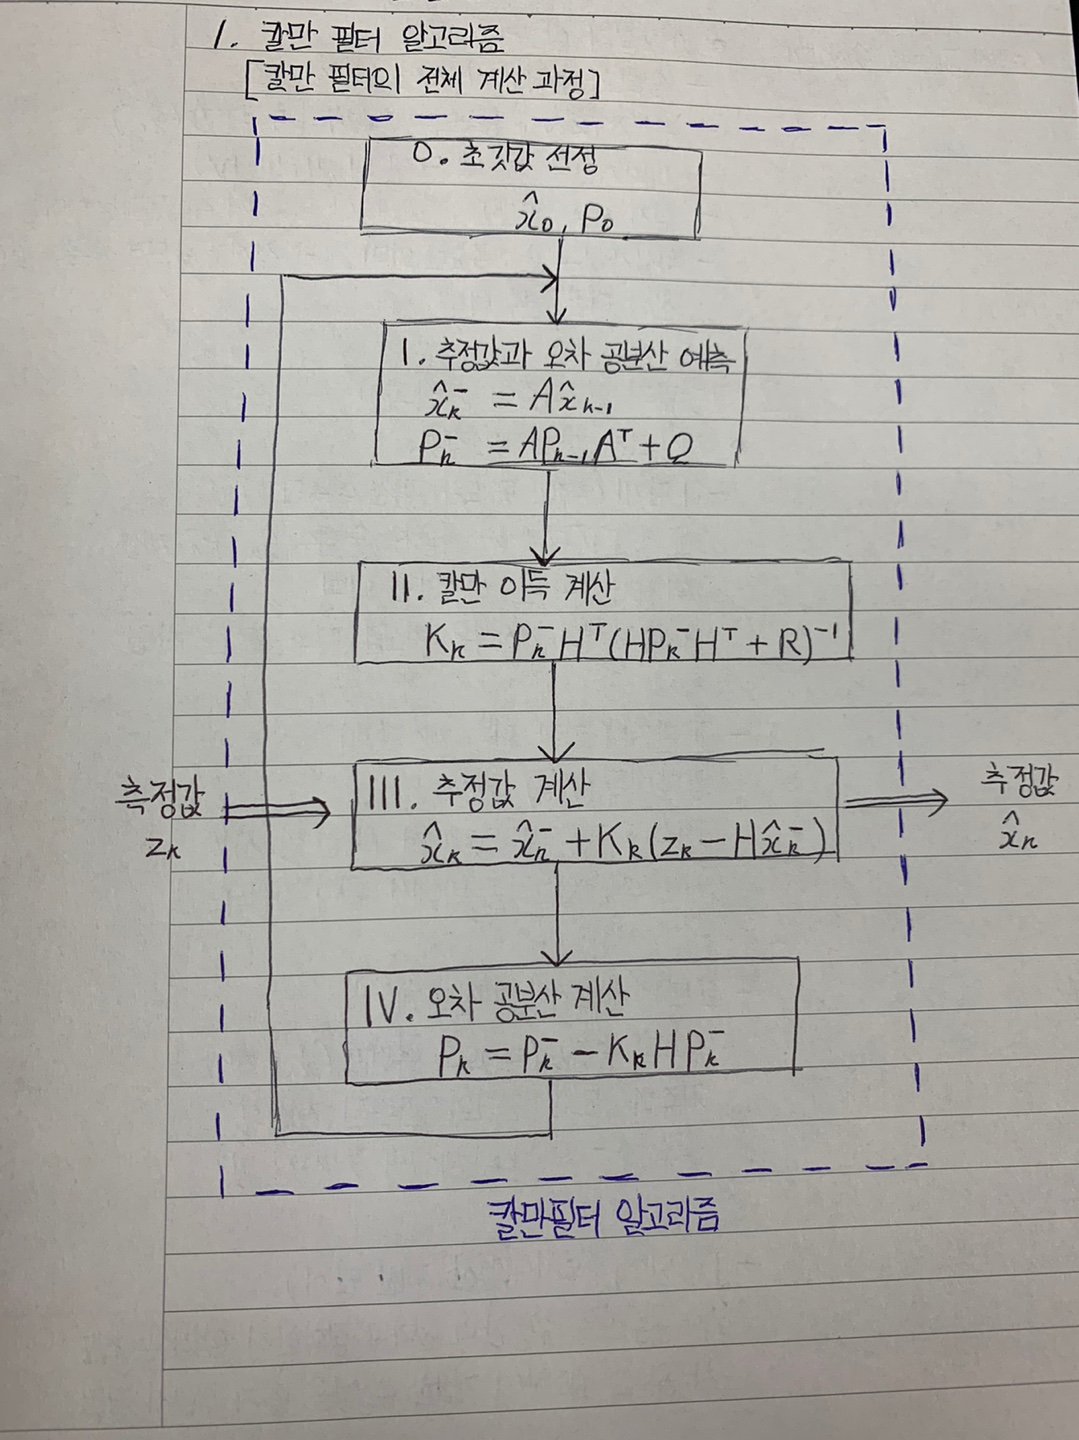 1. 칼만 필터 알고리즘
[칼만 필터의 전체 계산 과정]
0. 초깃값 선정
x̂₀, P₀
I. 추정값과 오차 공분산 예측
x̂ₖ⁻ = Ax̂ₖ₋₁
Pₖ⁻ = APₖ₋₁Aᵀ + Q
II. 칼만 이득 계산
Kₖ = Pₖ⁻Hᵀ(HPₖ⁻Hᵀ + R)⁻¹
측정값
zₖ
III. 추정값 계산
x̂ₖ = x̂ₖ⁻ + Kₖ(zₖ − Hx̂ₖ⁻)
추정값
x̂ₖ
IV. 오차 공분산 계산
Pₖ = Pₖ⁻ − KₖHPₖ⁻
칼만필터 알고리즘